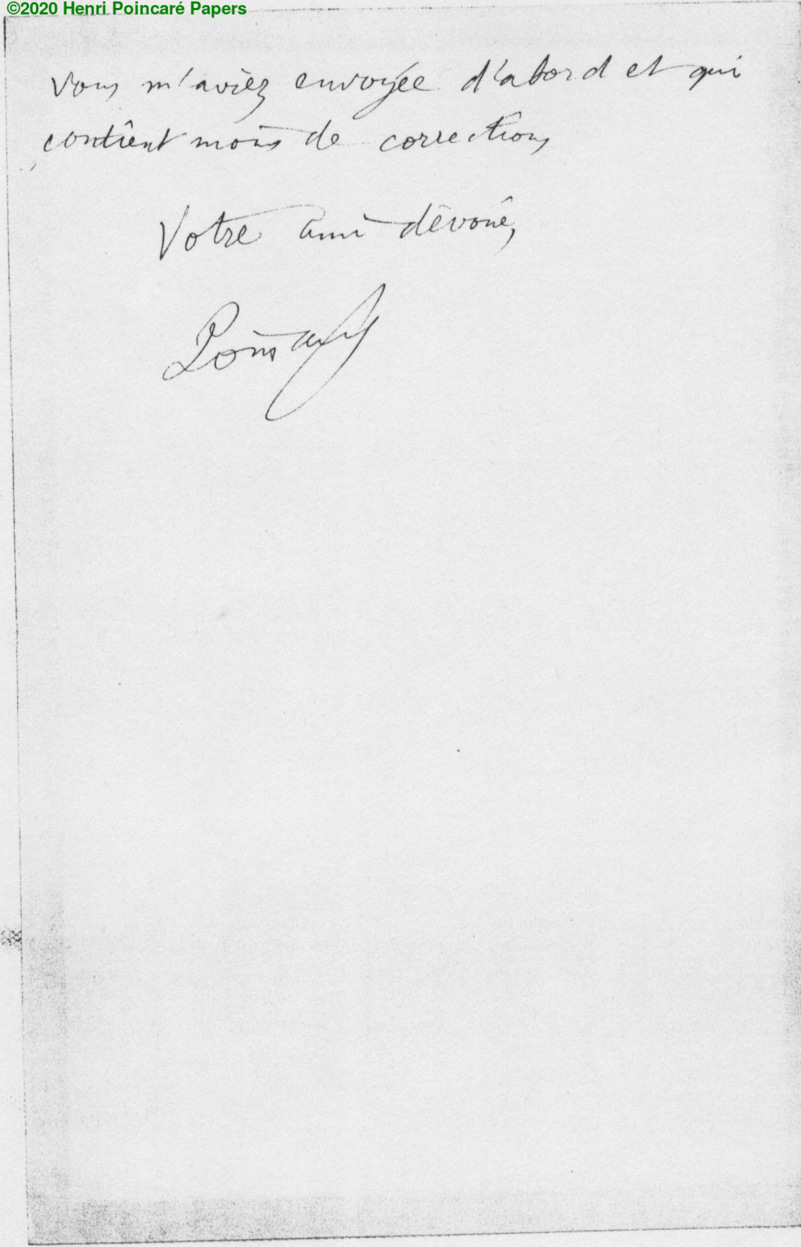 ©2020 Henri Poincaré Papers
vous m'aviez envoyée d'abord et qui
contient moins de corrections
Votre ami dévoué,
Poincaré